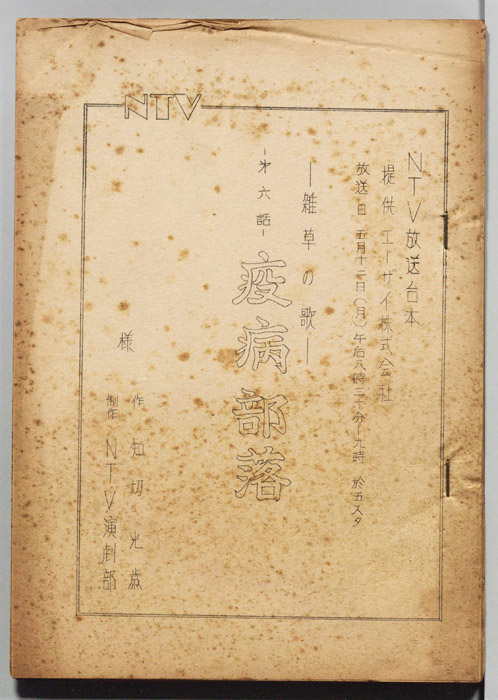 NTV
NTV放送台本
提供 エーザイ株式会社
放送日 五月十二日(月)午后八時三十分—九時 於五スタ
—雑草の歌—
—第六話—
疫病部落
様
作 知切光歳
制作 NTV演劇部